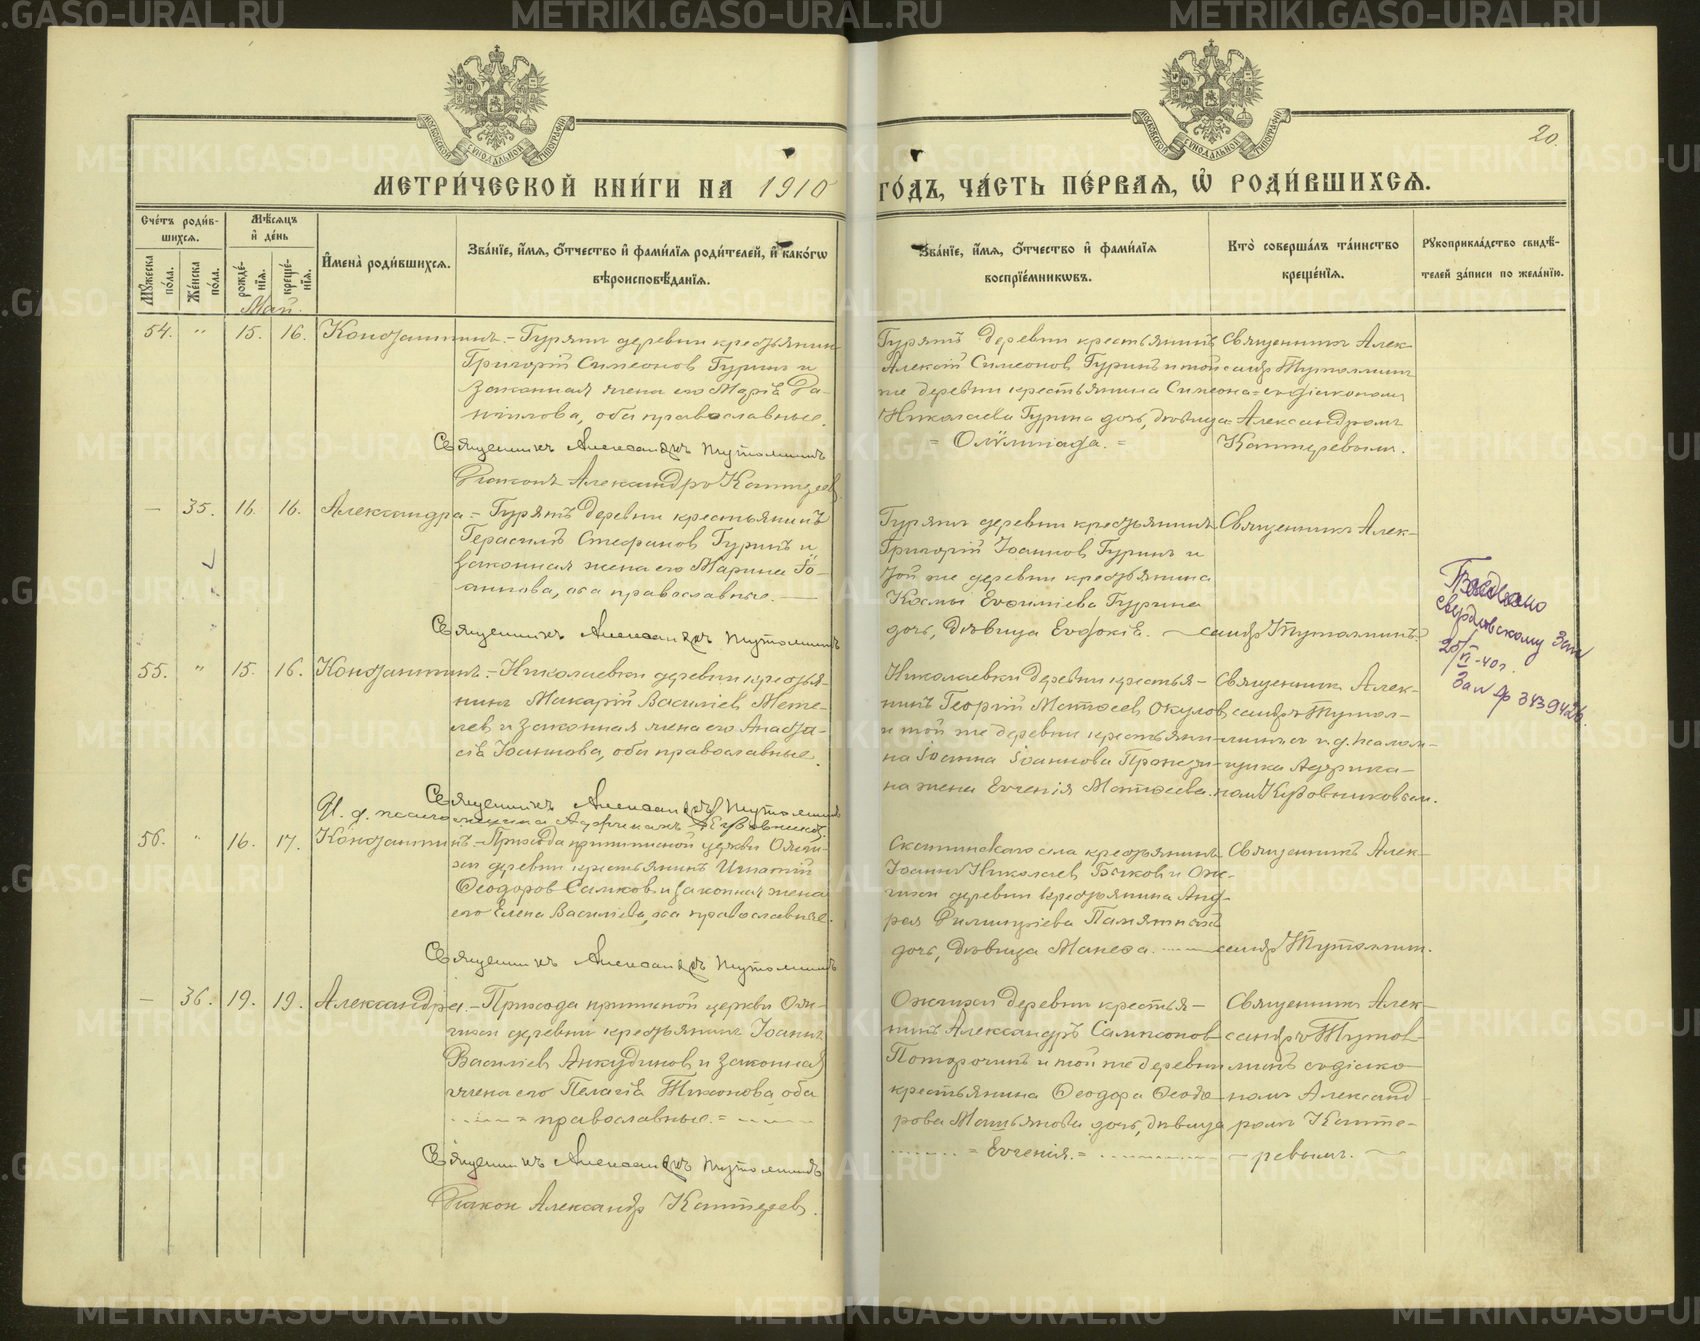 МЕТРИ́ЧЕСКОЙ КНИ́ГИ НА 1910
ГО́ДЪ, ЧА́СТЬ ПЕ́РВАѦ, Ѿ РОДИ́ВШИХСѦ.
20.
МОСКОВСКОЙ СѴНОДАЛЬНОЙ ТИПОГРАФІИ
МОСКОВСКОЙ СѴНОДАЛЬНОЙ ТИПОГРАФІИ
Счéтъ роди́в-
шихсѧ.
Мꙋ́жеска по́ла.
Же́нска по́ла.
Мѣ́сѧцъ
и҆ де́нь
рожде́-
нїѧ.
креще́-
нїѧ.
И҆мена̀ роди́вшихсѧ.
Зва́нїе, и҆́мѧ, ѻ҆́тчество и҆ фами́лїѧ роди́телей, и҆ како́гѡ
вѣроисповѣ́данїѧ.
Зва́нїе, и҆́мѧ, ѻ҆́тчество и҆ фами́лїѧ
воспрїе́мникѡвъ.
Кто̀ соверша́лъ та́инство
креще́нїѧ.
Рꙋкоприкла́дство свидѣ́-
телей за́писи по жела́нїю.
Май.
54. " 15. 16. Константинъ. – Гурятъ деревни крестьянинъ
Григорій Симеонов Гуринъ и
законная жена его Марія Да-
ніилова, оба православные.
Священникъ Александръ Тутолминъ
Діаконъ Александръ Каттерев.
Гурятъ деревни крестьянинъ
Алексій Симеонов Гуринъ и той
же деревни крестьянина Симеона
Николаева Гурина дочь, дѣвица
= Олимпіада. =
Священникъ Алек-
сандр Тутолмин
с діаконом
Александромъ
Каттеревымъ.
– 35. 16. 16. Александра = Гурятъ деревни крестьянинъ
Герасимъ Стефанов Гуринъ и
законная жена его Марина Іо-
аннова, оба православные. –
Священникъ Александръ Тутолминъ
Гурятъ деревни крестьянинъ
Григорій Іоаннов Гуринъ и
той же деревни крестьянина
Космы Евѳиміева Гурина
дочь, дѣвица Евдокія. –
Священникъ Алек-
сандр Тутолминъ.
Свердловскому
55. " 15. 16. Константинъ. – Николаевки деревни крестья-
нинъ Макарій Василіев Мете-
лев и законная жена его Анаста-
сія Іоаннова, оба православные.
Священникъ Александръ Тутолминъ
И. д. псаломщика Адріанъ Кудовников.
Николаевки деревни крестья-
нинъ Георгій Матѳеев Окулов
и той же деревни крестьяни-
на Іоанна Іоаннова
жена Евгенія Матѳеева.
Священникъ Алек-
сандръ Тутол-
минъ и. д. псалом-
щика Адріа-
ном Кудовниковым.
56. " 16. 17. Константинъ – Прихода приписной церкви Ожги-
хи деревни крестьянинъ Игнатій
Ѳеодоров Самков и законная жена
его Елена Василіева, оба православные.
Священникъ Александръ Тутолминъ
Скатинскаго села крестьянинъ
Іоаннъ Николаев Бачков и Ож-
гихи деревни крестьянина Анд-
рея
дочь, дѣвица
Священникъ Алек-
сандр Тутолмин.
– 36. 19. 19. Александра. – Прихода приписной церкви Ожги-
хи деревни крестьянинъ Іоаннъ
Василіев Анкудинов и законная
жена его Пелагія Тихонова, оба
= православные. =
Священникъ Александръ Тутолминъ
Діакон Александр Каттерев.
Ожгихи деревни крестья-
нинъ Александръ Сампсонов
Поторочинъ и той же деревни
крестьянина Ѳеодора Ѳеодо-
рова дочь, дѣвица
= Евгенія. =
Священникъ Алек-
сандръ Тутол-
минъ с діако-
номъ Александ-
ромъ Катте-
ревымъ. –